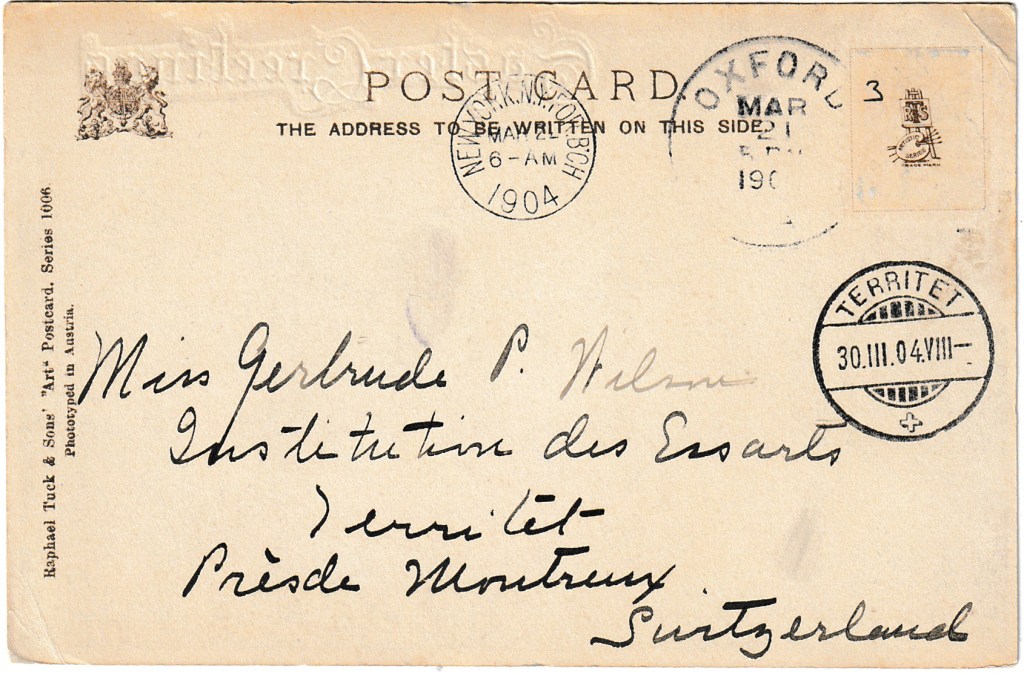 Easter Greetings
POST CARD.
THE ADDRESS TO BE WRITTEN ON THIS SIDE.
NEW YORK, N.Y. FOR. BCH
6-AM
1904
OXFORD
MAR
21
190
3
ARTISTIC
SERIES
TRADE MARK
TERRITET
30.III.04.VIII-
Raphael Tuck & Sons' "Art" Postcard. Series 1006.
Phototyped in Austria.
Miss Gertrude P. Wilson
Institution des Essarts
Territet
Près de Montreux
Switzerland